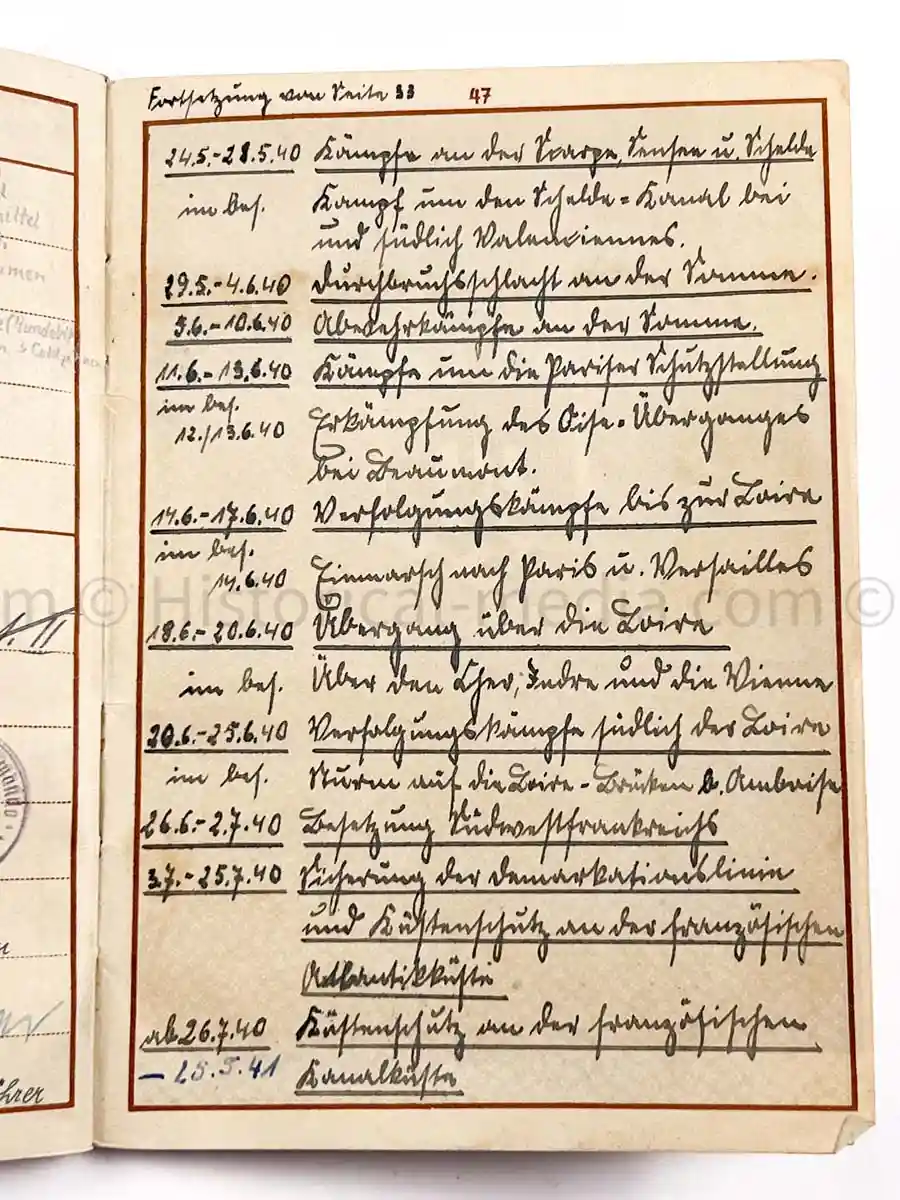 Fortsetzung von Seite 33 47
24.5.-28.5.40 Kämpfe an der Scarpe, Sensee u. Schelde
im bes. Kampf um den Schelde=Kanal bei
und südlich Valenciennes.
29.5.-4.6.40 Durchbruchsschlacht an der Somme.
5.6.-10.6.40 Abwehrkämpfe an der Somme.
11.6.-13.6.40 Kämpfe um die Pariser Schutzstellung
im bes.
12./13.6.40 Erkämpfung des Oise-Überganges
bei Beaumont.
14.6.-17.6.40 Verfolgungskämpfe bis zur Loire
im bes.
14.6.40 Einmarsch nach Paris u. Versailles
© Historical-media.com ©
18.6.-20.6.40 Übergang über die Loire
im bes. Über den Cher, Indre und die Vienne
20.6.-25.6.40 Verfolgungskämpfe südlich der Loire
im bes. Sturm auf die Loire-Brücken b. Amboise
26.6.-2.7.40 Besetzung Südwestfrankreichs
3.7.-25.7.40 Sicherung der Demarkationslinie
und Küstenschutz an der französischen
Atlantikküste
ab 26.7.40 Küstenschutz an der französischen
– 25.5.41 Kanalküste